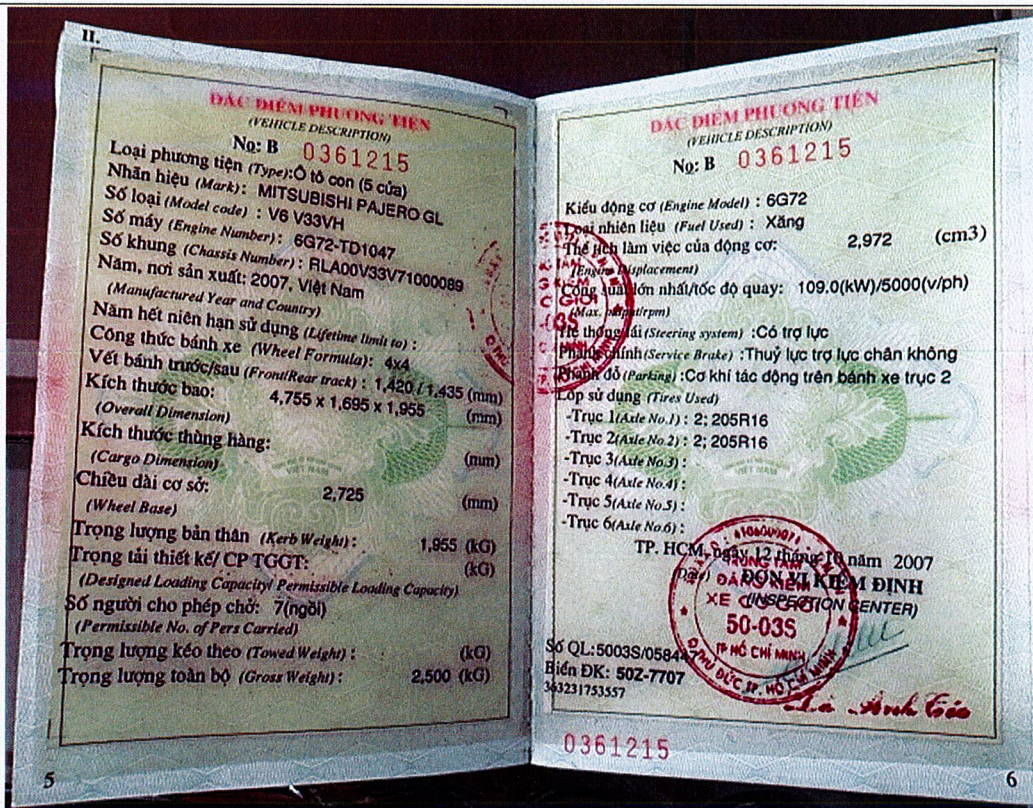 II.
ĐẶC ĐIỂM PHƯƠNG TIỆN
(VEHICLE DESCRIPTION)
No: B 0361215
Loại phương tiện (Type):Ô tô con (5 cửa)
Nhãn hiệu (Mark): MITSUBISHI PAJERO GL
Số loại (Model code) : V6 V33VH
Số máy (Engine Number): 6G72-TD1047
Số khung (Chassis Number) : RLA00V33V71000089
Năm, nơi sản xuất: 2007, Việt Nam
(Manufactured Year and Country)
Năm hết niên hạn sử dụng (Lifetime limit to) :
Công thức bánh xe (Wheel Formula): 4x4
Vết bánh trước/sau (Front/Rear track) : 1,420 / 1,435 (mm)
Kích thước bao: 4,755 x 1,695 x 1,955 (mm)
(Overall Dimension)
Kích thước thùng hàng: (mm)
(Cargo Dimension)
Chiều dài cơ sở: 2,725 (mm)
(Wheel Base)
Trọng lượng bản thân (Kerb Weight) : 1,955 (kG)
Trọng tải thiết kế/ CP TGGT: (kG)
(Designed Loading Capacity/ Permissible Loading Capacity)
Số người cho phép chở: 7(ngồi)
(Permissible No. of Pers Carried)
Trọng lượng kéo theo (Towed Weight) : (kG)
Trọng lượng toàn bộ (Gross Weight) : 2,500 (kG)
5
ĐẶC ĐIỂM PHƯƠNG TIỆN
(VEHICLE DESCRIPTION)
No: B 0361215
Kiểu động cơ (Engine Model) : 6G72
Loại nhiên liệu (Fuel Used) : Xăng
Thể tích làm việc của động cơ: 2,972 (cm3)
(Engine Displacement)
Công suất lớn nhất/tốc độ quay: 109.0(kW)/5000(v/ph)
(Max. output/rpm)
Hệ thống lái (Steering system) :Có trợ lực
Phanh chính (Service Brake) :Thuỷ lực trợ lực chân không
Phanh đỗ (Parking) :Cơ khí tác động trên bánh xe trục 2
Lốp sử dụng (Tires Used)
-Trục 1(Axle No.1) : 2; 205R16
-Trục 2(Axle No.2) : 2; 205R16
-Trục 3(Axle No.3) :
-Trục 4(Axle No.4) :
-Trục 5(Axle No.5) :
-Trục 6(Axle No.6) :
TP. HCM, ngày 12 tháng 10 năm 2007
(Date) ĐƠN VỊ KIỂM ĐỊNH
(INSPECTION CENTER)
TRUNG TÂM
ĐĂNG KIỂM
XE CƠ GIỚI
50-03S
TP HỒ CHÍ MINH
Q.THỦ ĐỨC T.P. HỒ CHÍ MINH
Số QL:5003S/05844
Biển ĐK: 50Z-7707
363231753557
0361215
6